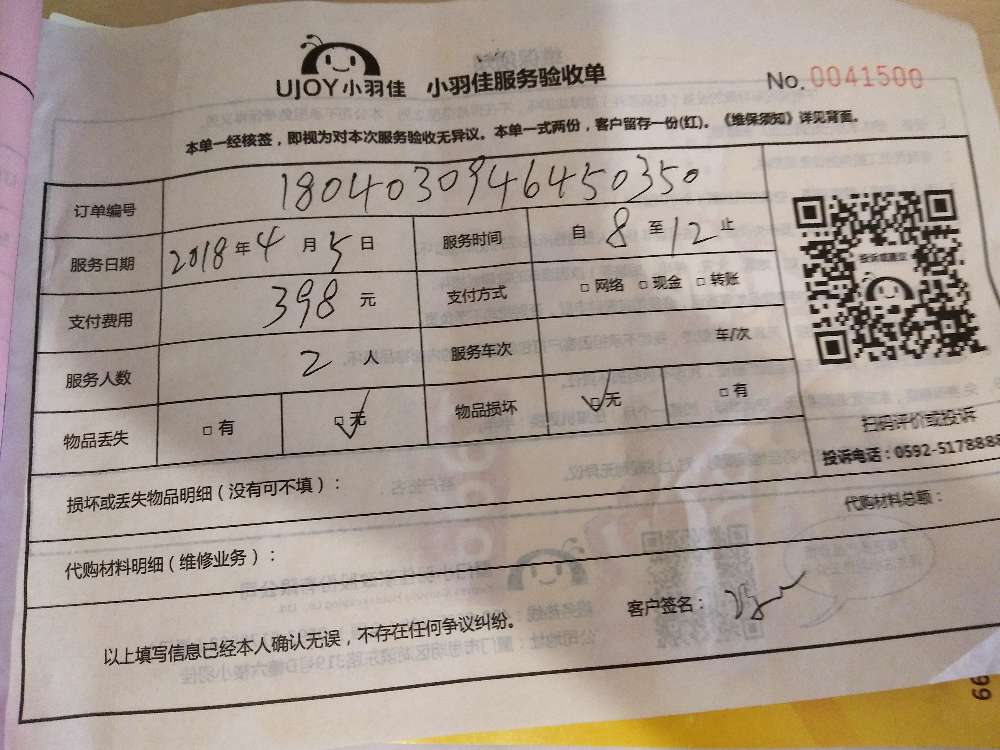 UJOY小羽佳 小羽佳服务验收单 No.0041500
本单一经核签，即视为对本次服务验收无异议。本单一式两份，客户留存一份(红)。《维保须知》详见背面。
订单编号 1804030946450350
服务日期 2018年4月5日 服务时间 自8至12止
支付费用 398元 支付方式 □网络 □现金 □转账
服务人数 2人 服务车次 车/次
物品丢失 □有 ☑无 物品损坏 ☑无 □有
投诉或建议
扫码评价或投诉
投诉电话：0592-5178888
损坏或丢失物品明细（没有可不填）：
代购材料明细（维修业务）： 代购材料总额：
以上填写信息已经本人确认无误，不存在任何争议纠纷。 客户签名：